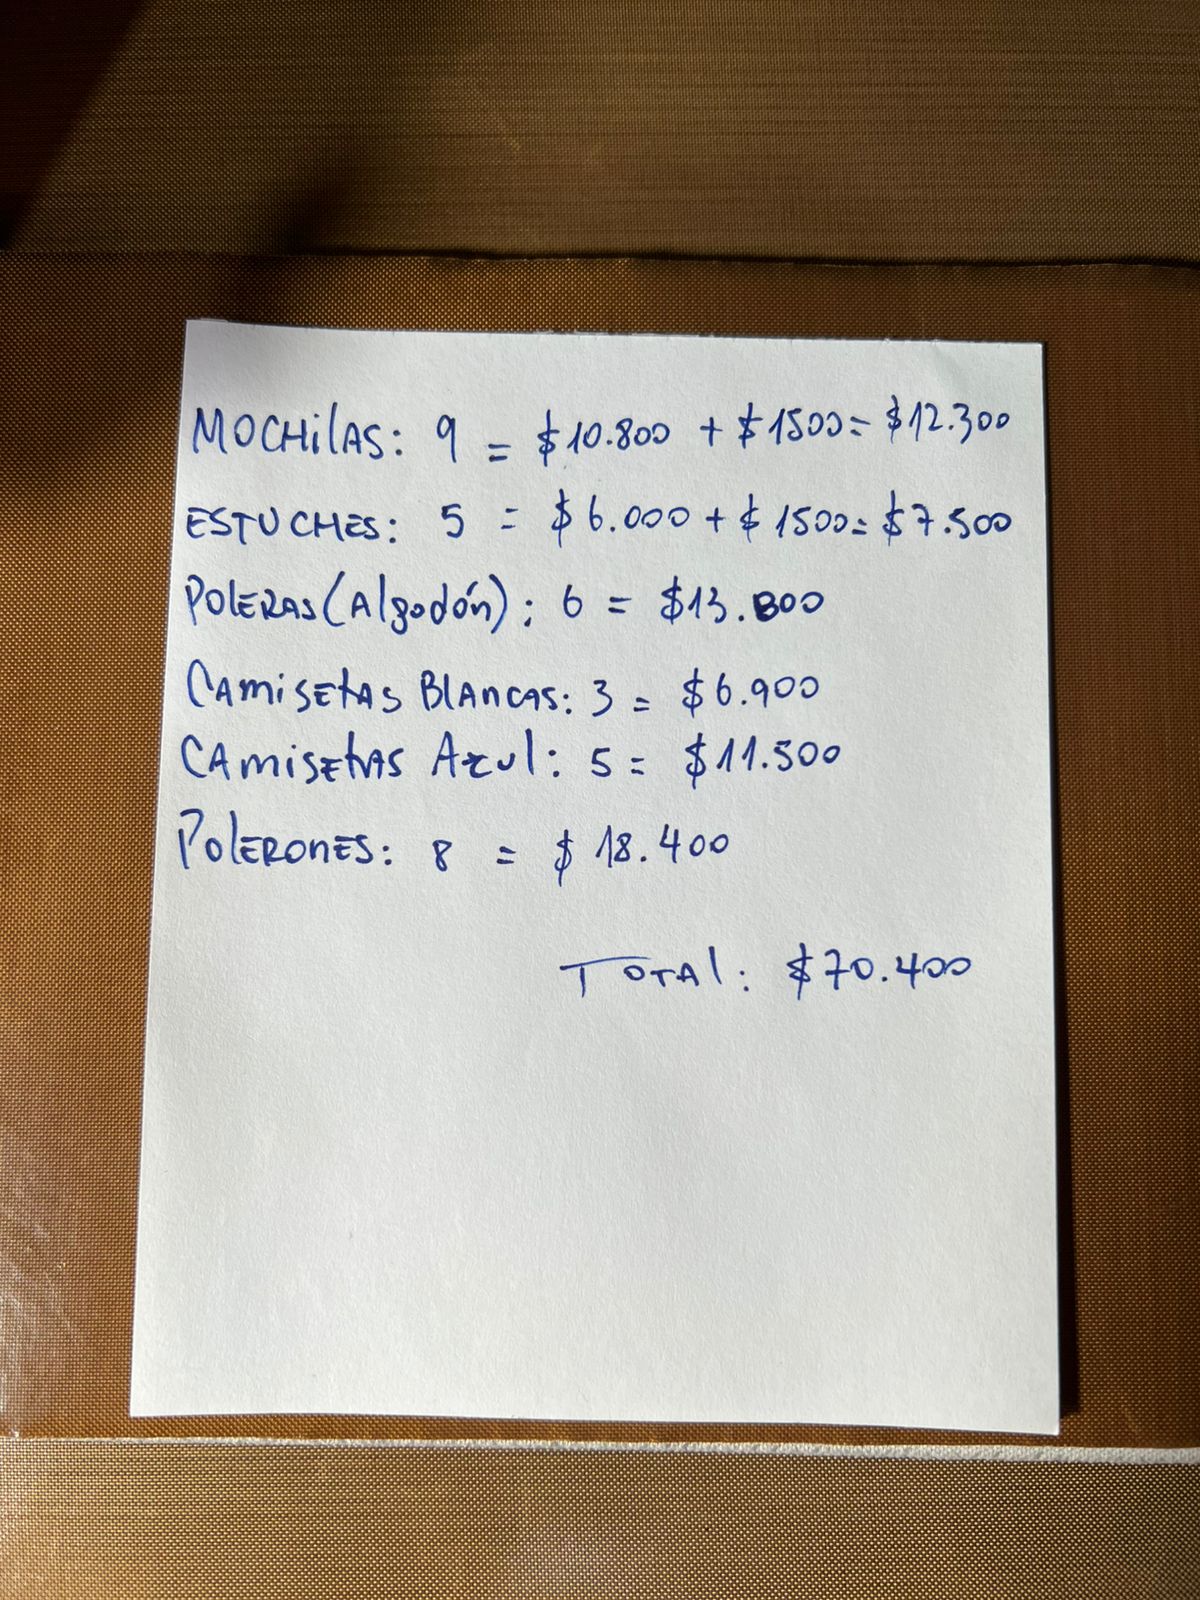 MOCHilAS: 9 = $10.800 + $1500= $12.300
ESTUCHES: 5 = $6.000 + $1500= $7.500
POLERAS (Algodón): 6 = $13.800
CAmisEtAS BlAncAS: 3 = $6.900
CAmisEtAS Azul: 5 = $11.500
PolERonES: 8 = $18.400
TOTAl: $70.400